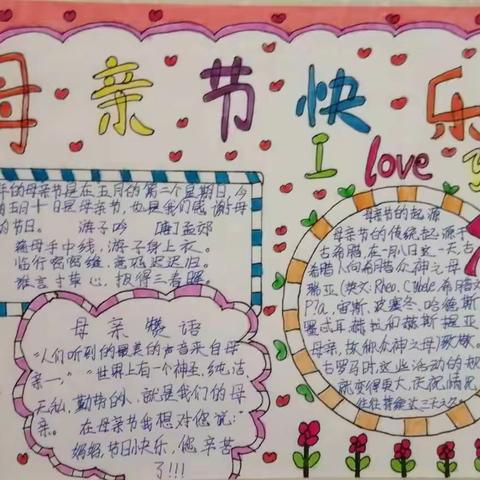 母亲节快乐
I love
年的母亲节是在五月的第二个星期日,今
五月十日是母亲节,也是我们感谢母
的节日。 游子吟 [唐]孟郊
慈母手中线,游子身上衣。
临行密密缝,意恐迟迟归。
谁言寸草心,报得三春晖。
母亲赞语
“人们听到的最美的声音来自母
亲—,”“世界上有一个神圣,纯洁,
无私,勤劳的人,就是我们的母
亲。 在母亲节我想对您说:“
妈妈,节日快乐,您辛苦
了!!!
母亲节的起源
母亲节的传统起源于
古希腊,在一月八日这一天,古
希腊人向希腊众神之母
瑞亚(英文:Rheo,
宙斯,波塞冬,哈德斯
得墨忒耳,赫拉和赫斯提亚
母亲,故称众神之母)致敬。
古罗马时这些活动的规
就变得更大,庆祝情况
往往持续达三天之久